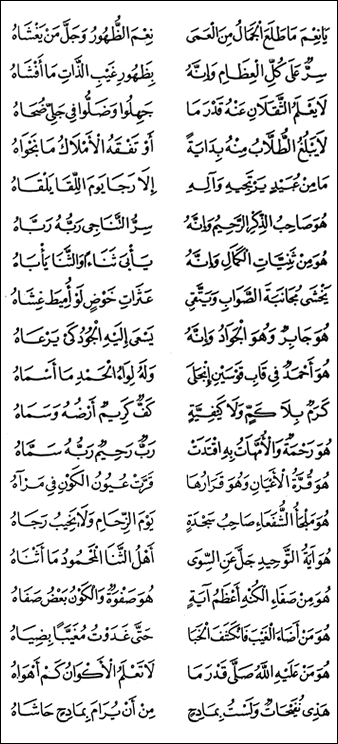 يَانِعْمَ مَا طَلَعَ الْجَمَالُ مِنَ الْعَمَى نِعْمَ الظُّهُورُ وَجَلَّ مَنْ يَغْشَاهُ
سِرٌّ عَلَى كُلِّ الْعِظَامِ وَإِنَّهُ بِظُهُورِ غَيْبِ الذَّاتِ مَا أَفْشَاهُ
لَا يَعْلَمُ الثَّقَلَانِ عَنْهُ قَدْرَ مَا جَهِلُوا وَضَلُّوا فِي جَلِيِّ ضُحَاهُ
لَا يَبْلُغُ الطُّلَّابُ مِنْهُ بِدَايَةً أَوْ تَفْقَهُ الْأَمْلَاكُ مَا نَجْوَاهُ
مَا مِنْ عُبَيْدٍ يَرْتَجِيهِ وَآلِهِ إِلَّا رَجَا يَوْمَ اللِّقَا يَلْقَاهُ
هُوَ صَاحِبُ الذِّكْرِ الرَّحِيمُ وَإِنَّهُ سِرُّ التَّنَاجِى رَبُّهُ رَبَّاهُ
هُوَ مِنْ ثَنِيَّاتِ الْكَمَالِ وَإِنَّهُ يَأْبَى ثَنَاءً وَالثَّنَا يَأْبَاهُ
يَخْشَى مُجَانَبَةَ الصَّوَابِ وَيَتَّقِي عَثَرَاتِ خَوْضٍ لَوْ أُمِيطَ غِشَاهُ
هُوَ جَابِرٌ وَهُوَ الْجَوَادُ وَإِنَّهُ يَسْعَى إِلَيْهِ الْجُودُ كَىْ يَرْعَاهُ
هُوَ أَحْمَدٌ فِي قَابِ قَوْسَيْنِ انْجَلَى وَلَهُ لِوَاءُ الْحَمْدِ مَا أَسْمَاهُ
كَرَمٌ بِلَا كَمٍّ وَلَا كَيْفِيَّةٍ كَفٌّ كَرِيمٌ أَرْضُهُ وَسَمَاهُ
هُوَ رَحْمَةٌ وَالْأُمَّهَاتُ بِهِ اقْتَدَتْ رَبٌّ رَحِيمٌ رَبُّهُ سَمَّاهُ
هُوَ قُرَّةُ الْأَعْيَانِ وَهُوَ قَرَارُهَا قَرَّتْ عُيُونُ الْكَوْنِ فِي مَرْآهُ
هُوَ مَلْجَأُ الشُّفَعَاءِ صَاحِبُ سَجْدَةٍ يَوْمَ الزِّحَامِ وَلَا يَخِيبُ رَجَاهُ
هُوَ آيَةُ التَّوْحِيدِ جَلَّ عَنِ السِّوَى أَهْلُ الثَّنَا الْمَحْمُودُ مَا أَثْنَاهُ
هُوَ مِنْ صَفَاءِ الْكُنْهِ أَعْظَمُ آيَةٍ هُوَ صَفْوَةٌ وَالْكَوْنُ بَعْضُ صَفَاهُ
هُوَ مَنْ أَضَاءَ الْغَيْبَ فَانْكَشَفَ الْخَبَا حَتَّى غَدَوْتُ مُغَيَّبًا بِضِيَاهُ
هُوَ مَنْ عَلَيْهِ اللَّهُ صَلَّى قَدْرَ مَا لَا تَعْلَمُ الْأَكْوَانُ كَمْ أَهْوَاهُ
هَذِى نُفَيْحَاتٌ وَلَسْتُ بِمَادِحٍ مِنْ أَنْ يُرَامَ بِمَادِحٍ حَاشَاهُ